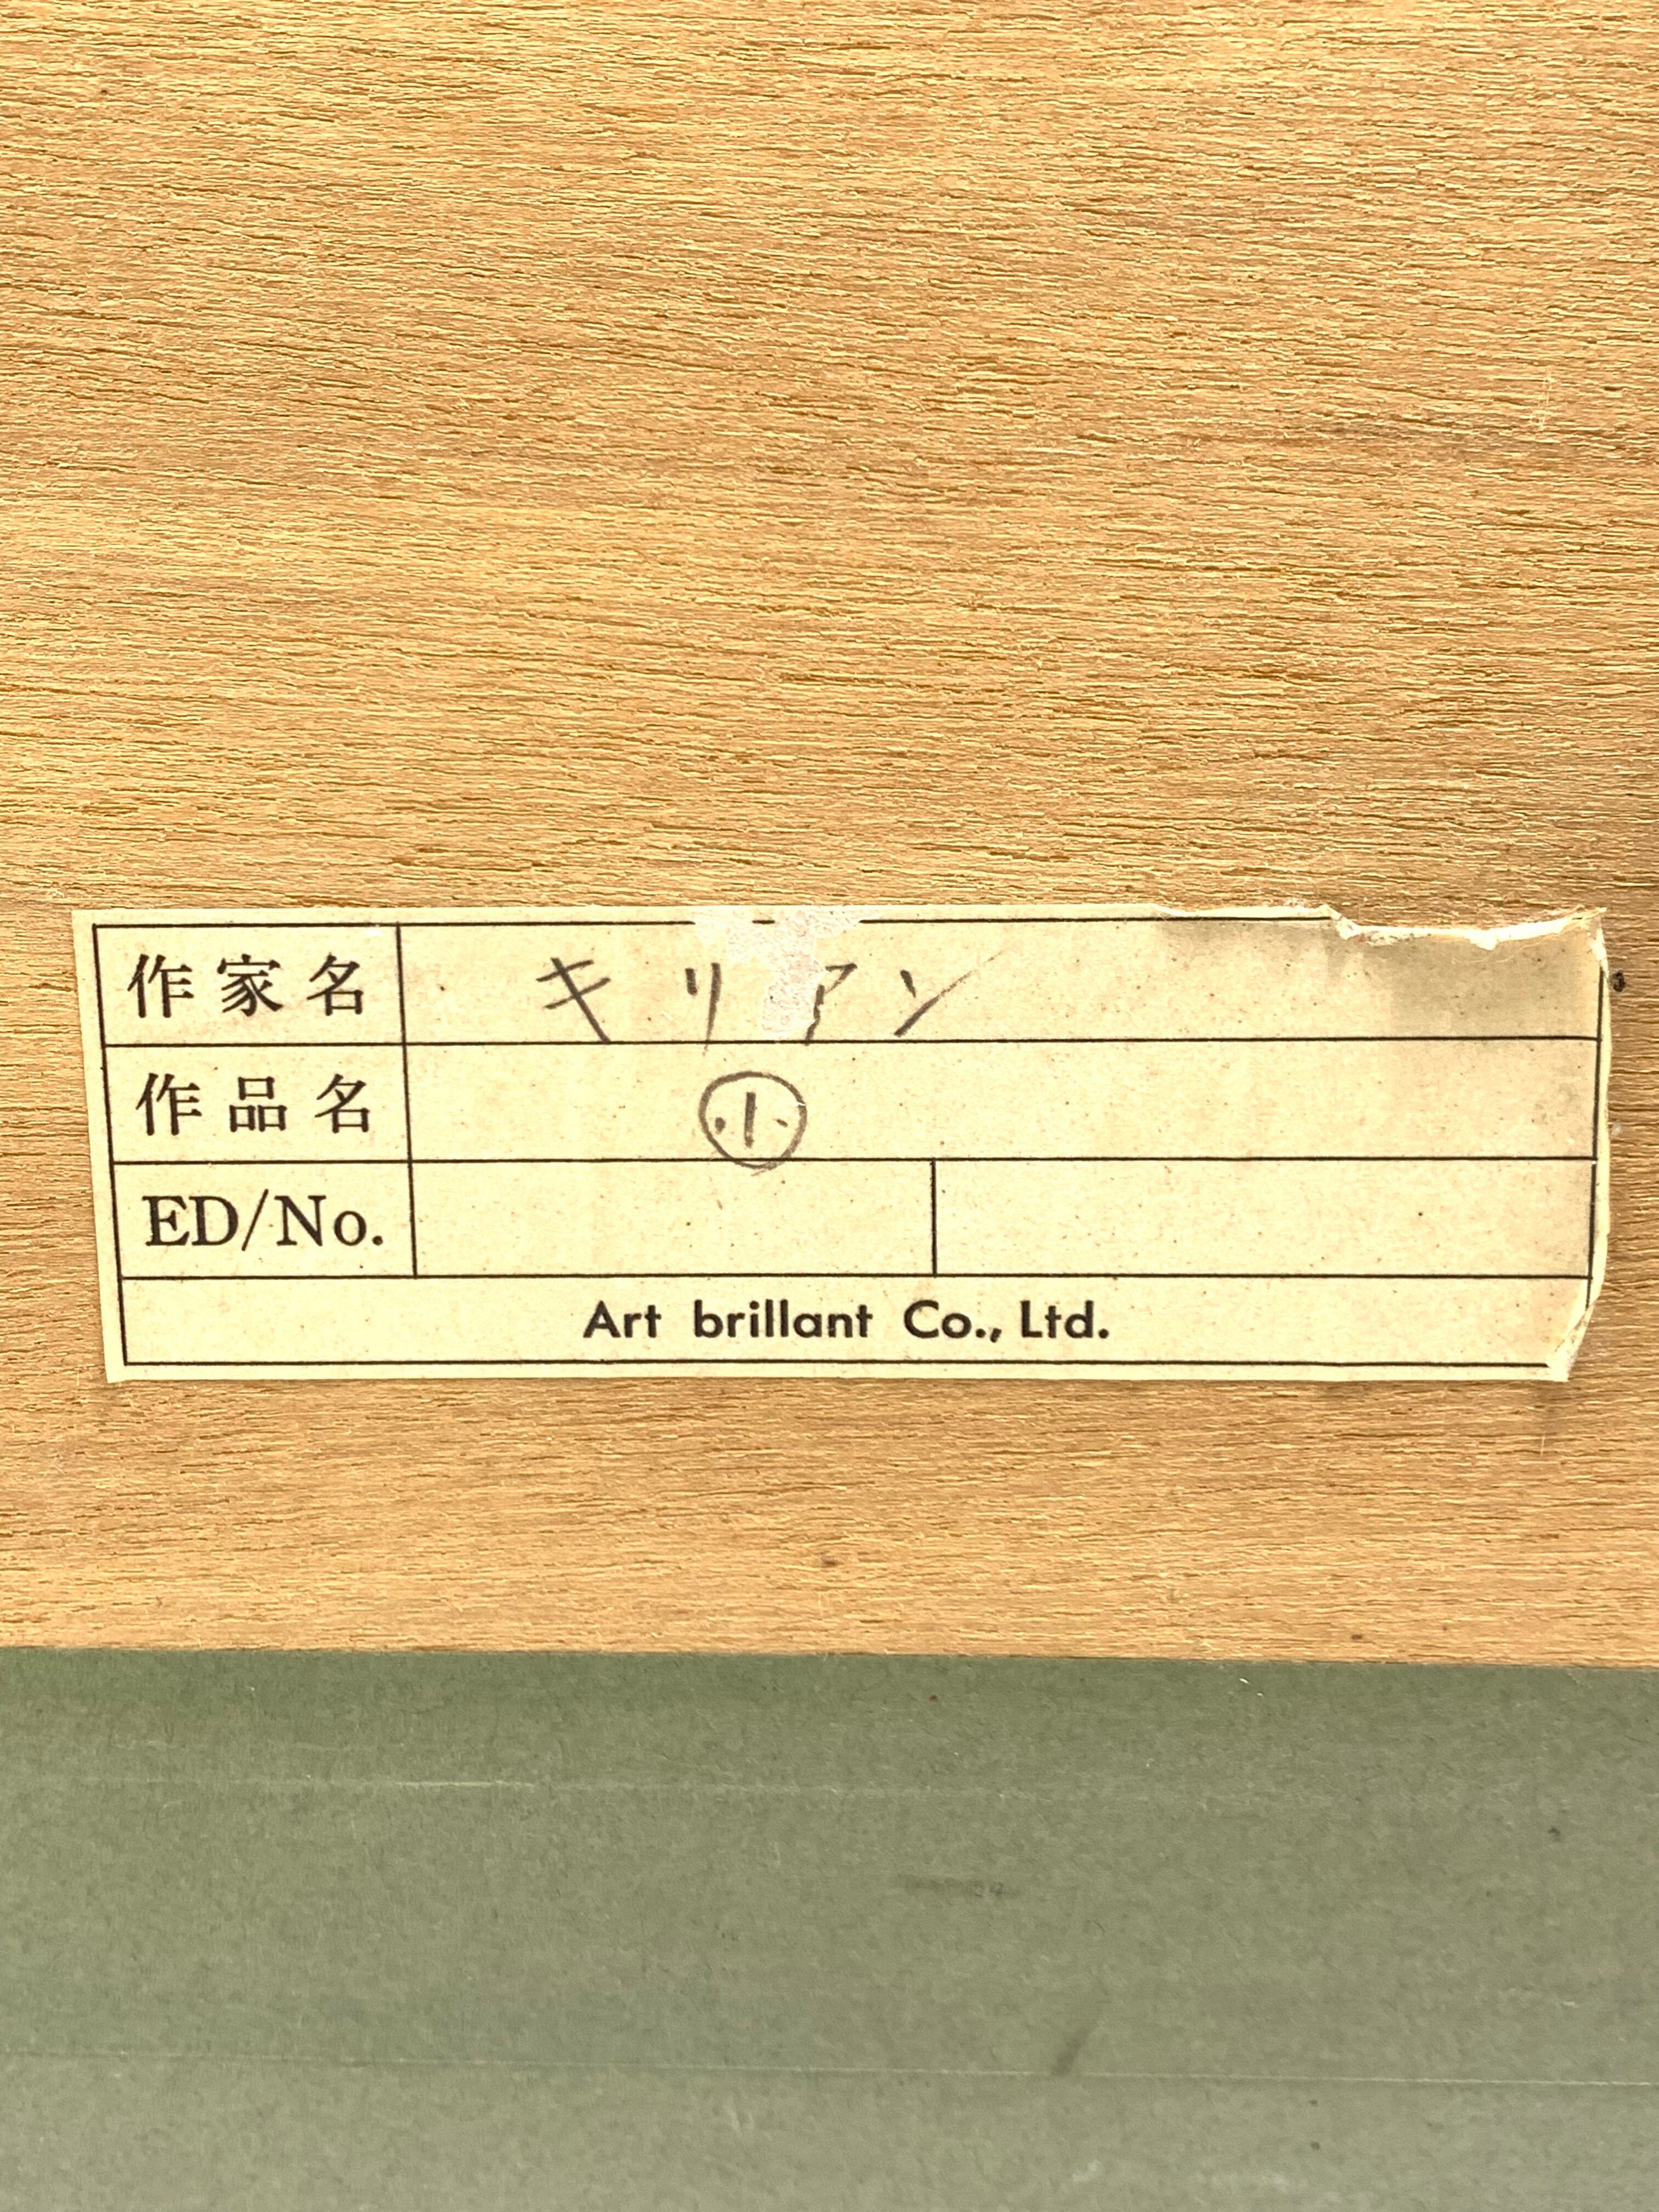 作家名 キリアン
作品名 ㊥小
ED/No.
Art brillant Co., Ltd.